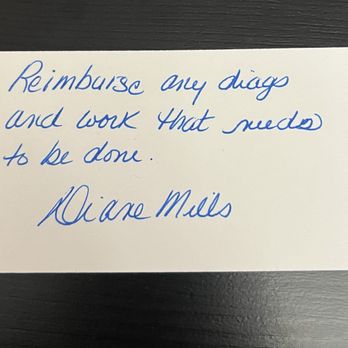 Reimburse any diags
and work that needs
to be done.
Diane Mills